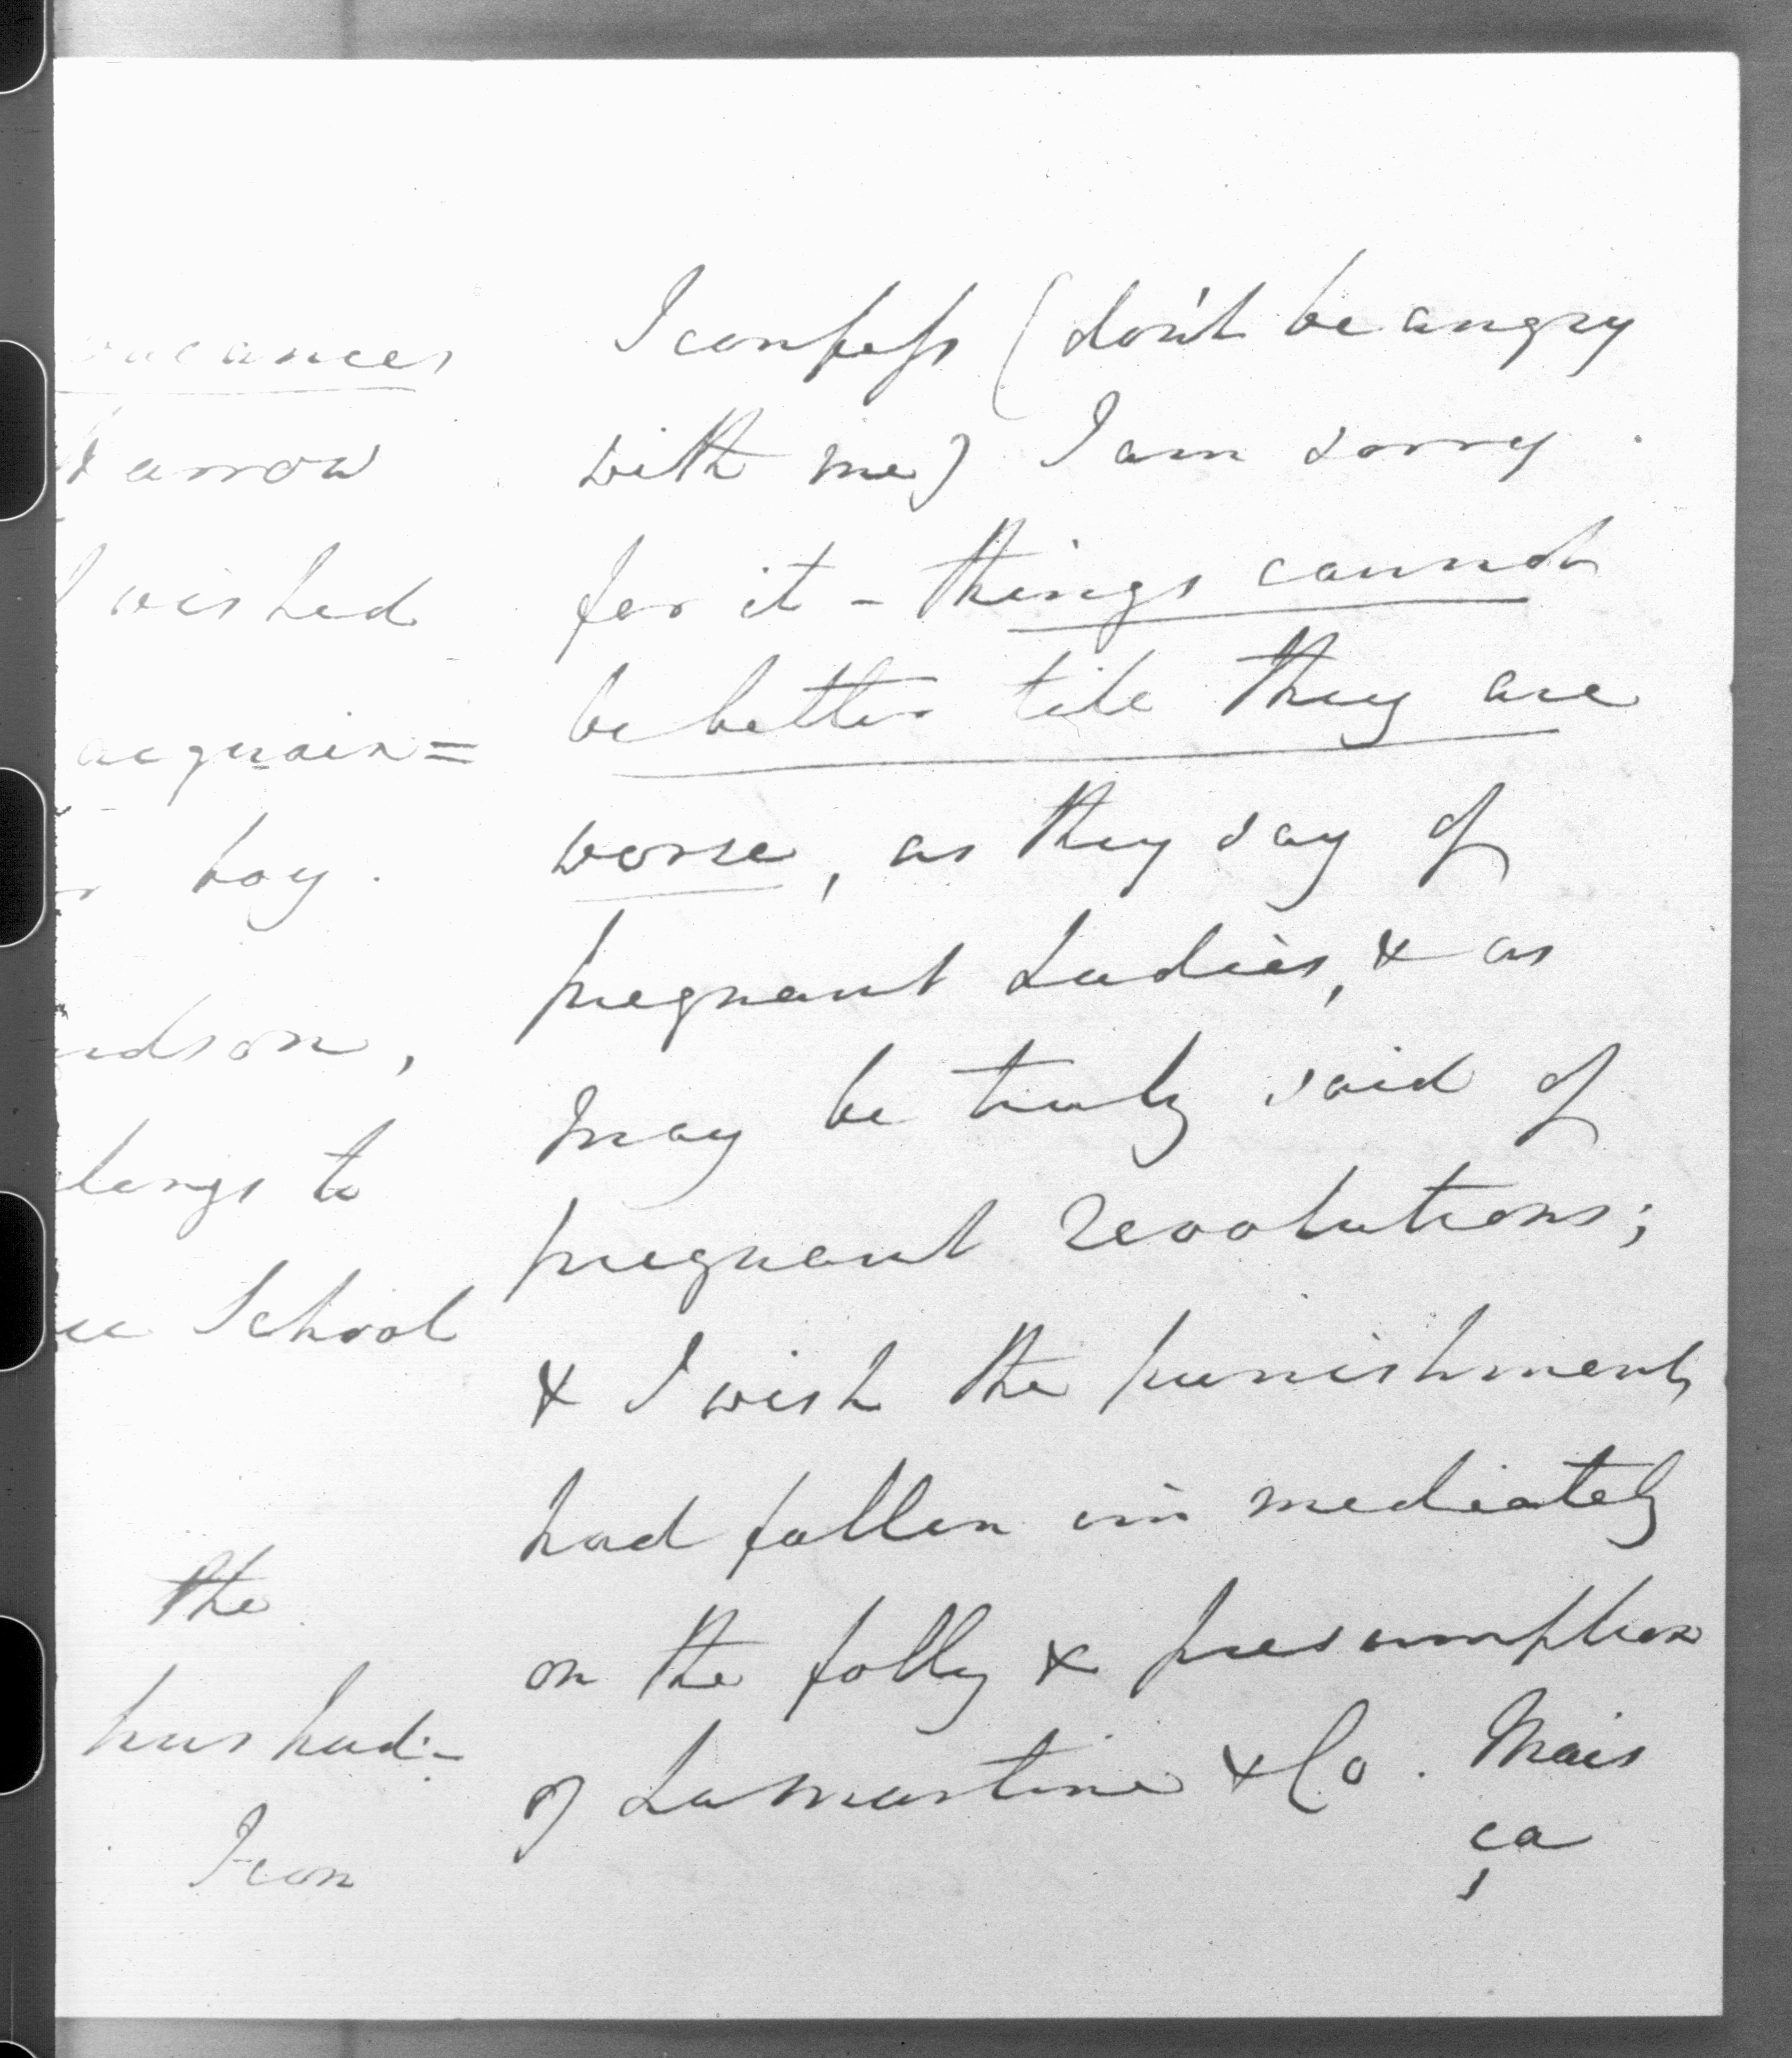 vacances
Harrow
I wished
acquain=
boy.
udson,
longs to
School
the
has had -
I con
I confess (don't be angry
with me) I am sorry
for it - things cannot
be better till they are
worse, as they say of
pregnant Ladies, & as
may be truly said of
pregnant Revolutions;
& I wish the punishment
had fallen immediately
on the folly & presumption
of Lamartine & Co. Mais
ça